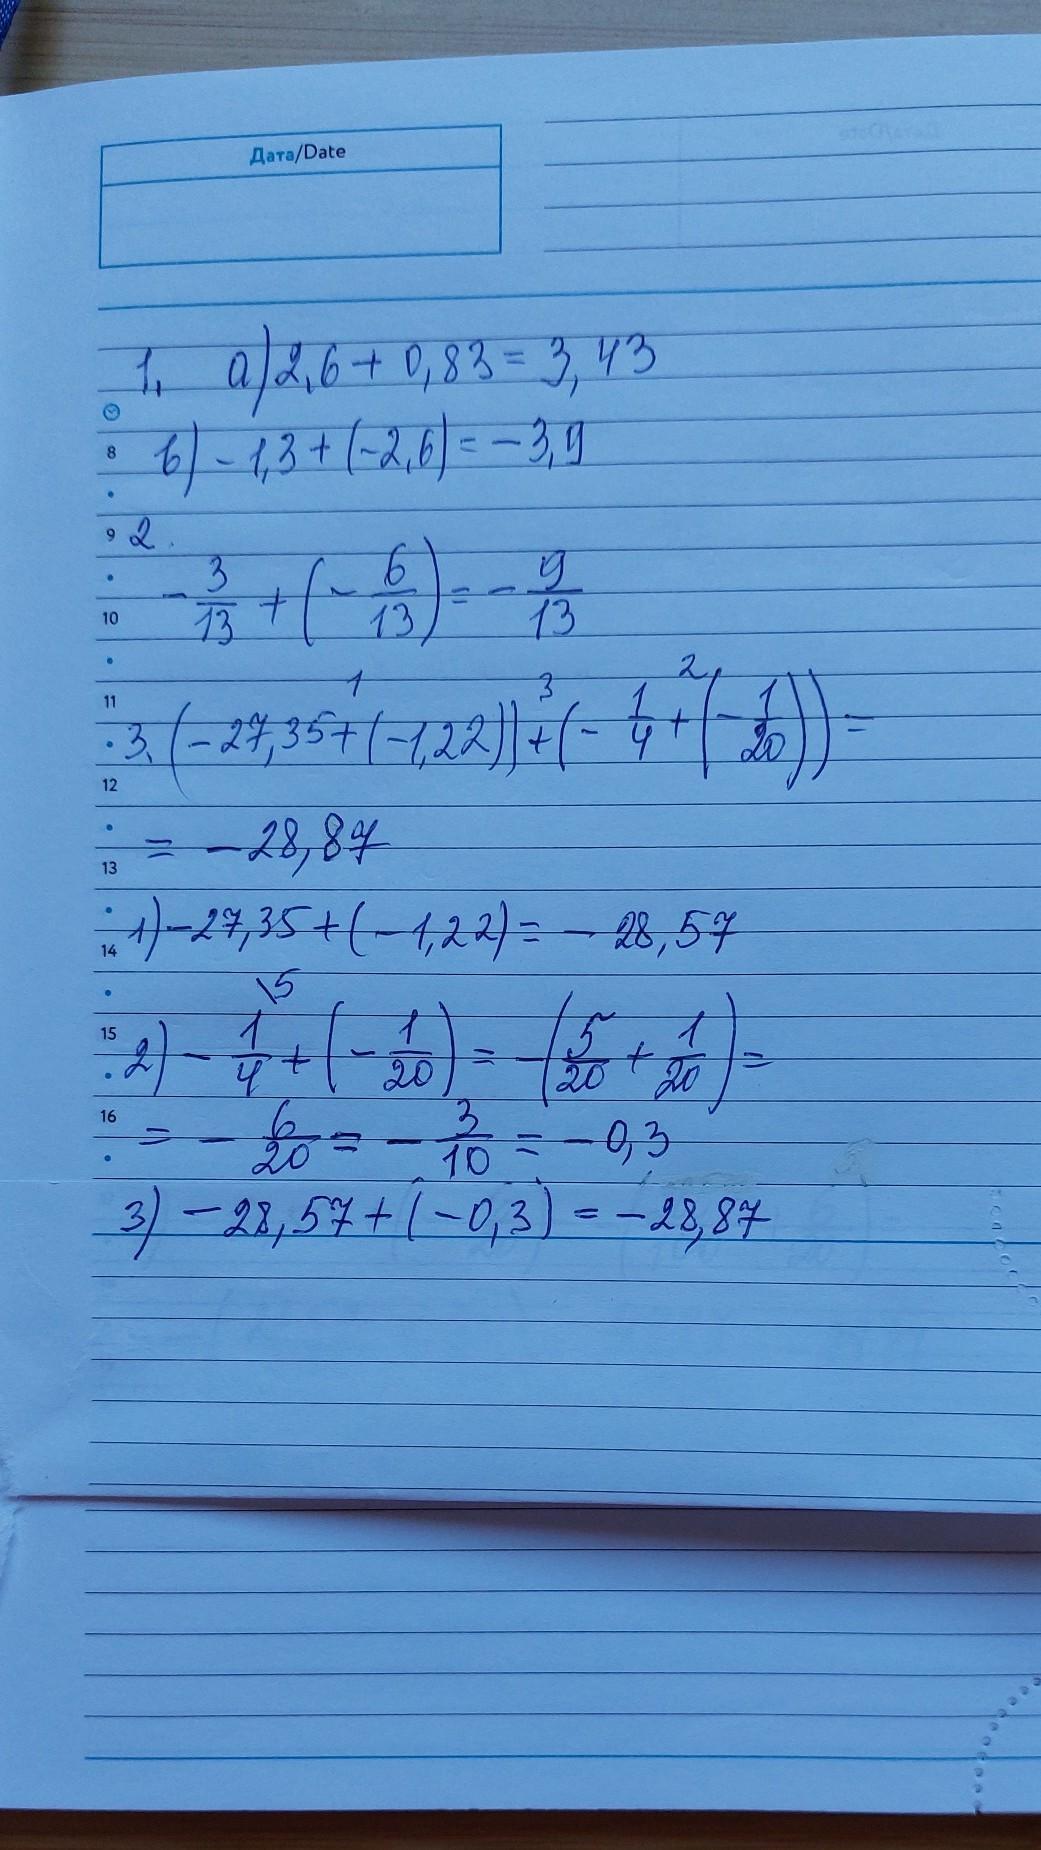 Дата/Date
1. а) 2,6 + 0,83 = 3,43
8
в) -1,3 + (-2,6) = -3,9
9
2.
-3/13 + (-6/13) = -9/13
10
1 3 2
11
3. (-27,35 + (-1,22)) + (-1/4 + (-1/20)) =
12
= -28,87
13
1) -27,35 + (-1,22) = -28,57
14
\5
15
2) -1/4 + (-1/20) = -(5/20 + 1/20) =
16
= -6/20 = -3/10 = -0,3
3) -28,57 + (-0,3) = -28,87